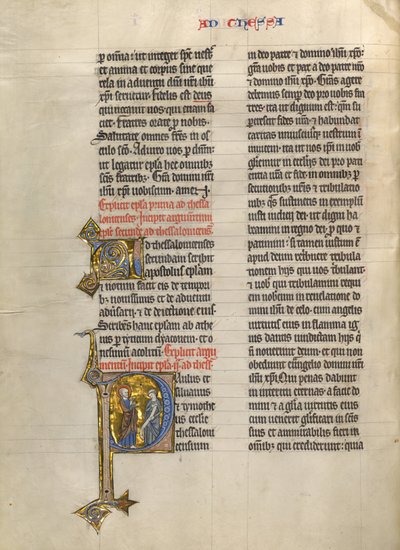 AD THESSA
p omnia: ut integer spc uest
et anima et corpus sine que
rela in aduentu dni nri ihu
xpi seruetur. fidelis est deus
qui uocauit uos: qui etiam fa
ciet. fratres orate p nobis.
Salutate omnes fres in os
culo sco. Adiuro uos p dnm:
ut legatur epla hec omnibz
scis fratribz. Gra domini nri
ihu xpi uobiscum. amen.
Explicit epla prima ad thessa
lonicenses. Incipit argumentum
eple secunde ad thessalonicens
Ad thessalonicenses
secundam scribit
apostolus eplam
et notum facit eis de tempori
bz nouissimis et de aduentu
aduersarii et de deiectione eius.
Scribens hanc eplam ab athe
nis p tyticum dyaconem. et o
nesimum acolitum. Explicit argu
mentum. Incipit epla ii. ad thess.
Paulus et
siluanus
et tymothe
us ecclie
thessaloni
censium
in deo patre et domino ihu xpo.
gra uobis et pax a deo patre nro
et domino ihu xpo. Gras agere
debemus semp deo pro uobis fra
tres. ita ut dignum est: qm su
percrescit fides ura. et habundat
caritas uniuscuiusqz uestrum in
inuicem. ita ut nos ipi in uob
gliemur in ecclesiis dei pro pati
entia ura et fide. in omnibz p
secutionibz uris et tribulatio
nibz qs sustinetis in exemplum
iusti iudicii dei: ut digni ha
beamini in regno dei. p quo et
patimini: si tamen iustum e
apud deum retribuere tribula
tionem hiis qui uos tribulant:
et uob qui tribulamini requi
em nobiscum in reuelatione do
mini ihu de celo. cum angelis
uirtutis eius in flamma ig
nis dantis uindictam hiis q
n nouerunt deum. et qui non
obediunt euuanglio domini nri
ihu xpi. Qui penas dabunt
in interitu eternas. a facie do
mini et a glia uirtutis eius
cum uenerit glificari in scis
suis et ammirabilis fieri in
omnibz qui crediderunt: quia